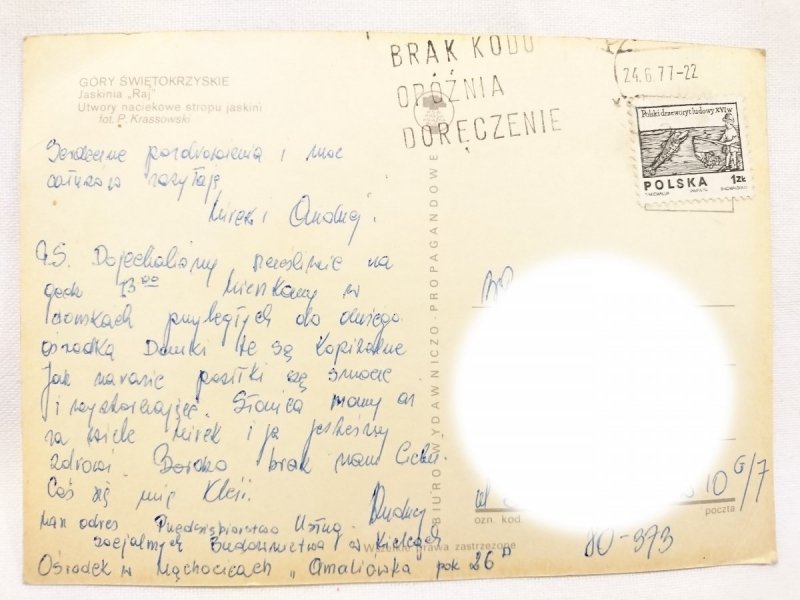 GÓRY ŚWIĘTOKRZYSKIE
Jaskinia „Raj”
Utwory naciekowe stropu jaskini
fot. P. Krassowski
BRAK KODU
OPÓŹNIA
DORĘCZENIE
24.6.77-22
Polski drzeworyt ludowy XVI w
POLSKA 1ZŁ
Serdeczne pozdrowienia i moc
całusów zasyłają
Mirek i Andrzej.
P.S. Dojechaliśmy szczęśliwie na
godz 13⁰⁰ Mieszkamy w
domkach przyległych do
ośrodka Domki te są kapitalne
Jak na razie posiłki są smaczne
i wystarczające. Słońca mamy aż
za wiele Mirek i ja jesteśmy
zdrowi. Bardzo brak nam Ciebie.
Coś się mię klei.
Andrzej
Nasz adres Przedsiębiorstwo Usług
socjalnych Budownictwa w Kielcach
Ośrodek w Mąchocicach „Amaliówka pok 26"
BIURO WYDAWNICZO-PROPAGANDOWE
Wszelkie prawa zastrzeżone
ul
10 G/7
ozn. kod
poczta
80-373